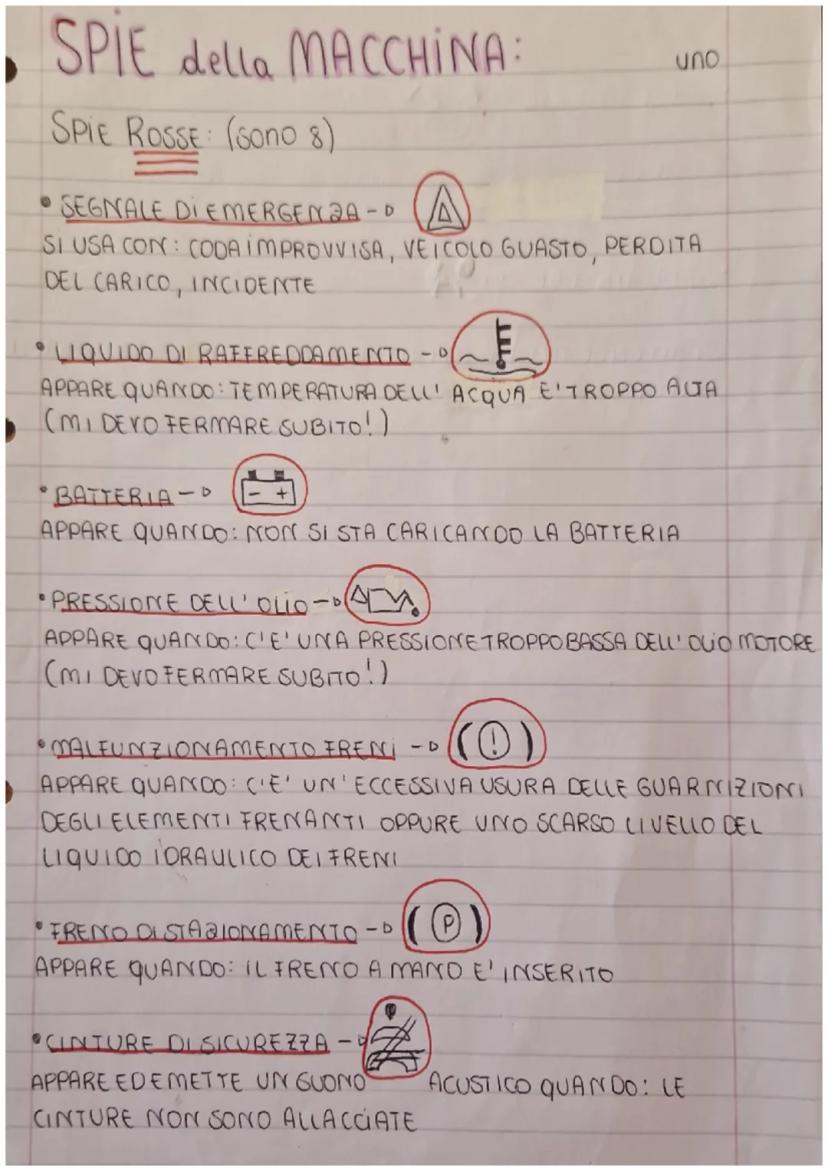 SPIE della MACCHINA: uno
SPIE ROSSE: (sono 8)
• SEGNALE DI EMERGENZA -
SI USA CON: CODA IMPROVVISA, VEICOLO GUASTO, PERDITA
DEL CARICO, INCIDENTE
• LIQUIDO DI RAFFREDDAMENTO -
APPARE QUANDO: TEMPERATURA DELL' ACQUA E' TROPPO ALTA
(MI DEVO FERMARE SUBITO!)
• BATTERIA - - +
APPARE QUANDO: NON SI STA CARICANDO LA BATTERIA
• PRESSIONE DELL' OLIO -
APPARE QUANDO: C'E' UNA PRESSIONE TROPPO BASSA DELL' OLIO MOTORE
(MI DEVO FERMARE SUBITO!)
• MALFUNZIONAMENTO FRENI - (!)
APPARE QUANDO: C'E' UN' ECCESSIVA USURA DELLE GUARNIZIONI
DEGLI ELEMENTI FRENANTI OPPURE UNO SCARSO LIVELLO DEL
LIQUIDO IDRAULICO DEI FRENI
• FRENO DI STAZIONAMENTO - (P)
APPARE QUANDO: IL FRENO A MANO E' INSERITO
• CINTURE DI SICUREZZA -
APPARE ED EMETTE UN SUONO ACUSTICO QUANDO: LE
CINTURE NON SONO ALLACCIATE